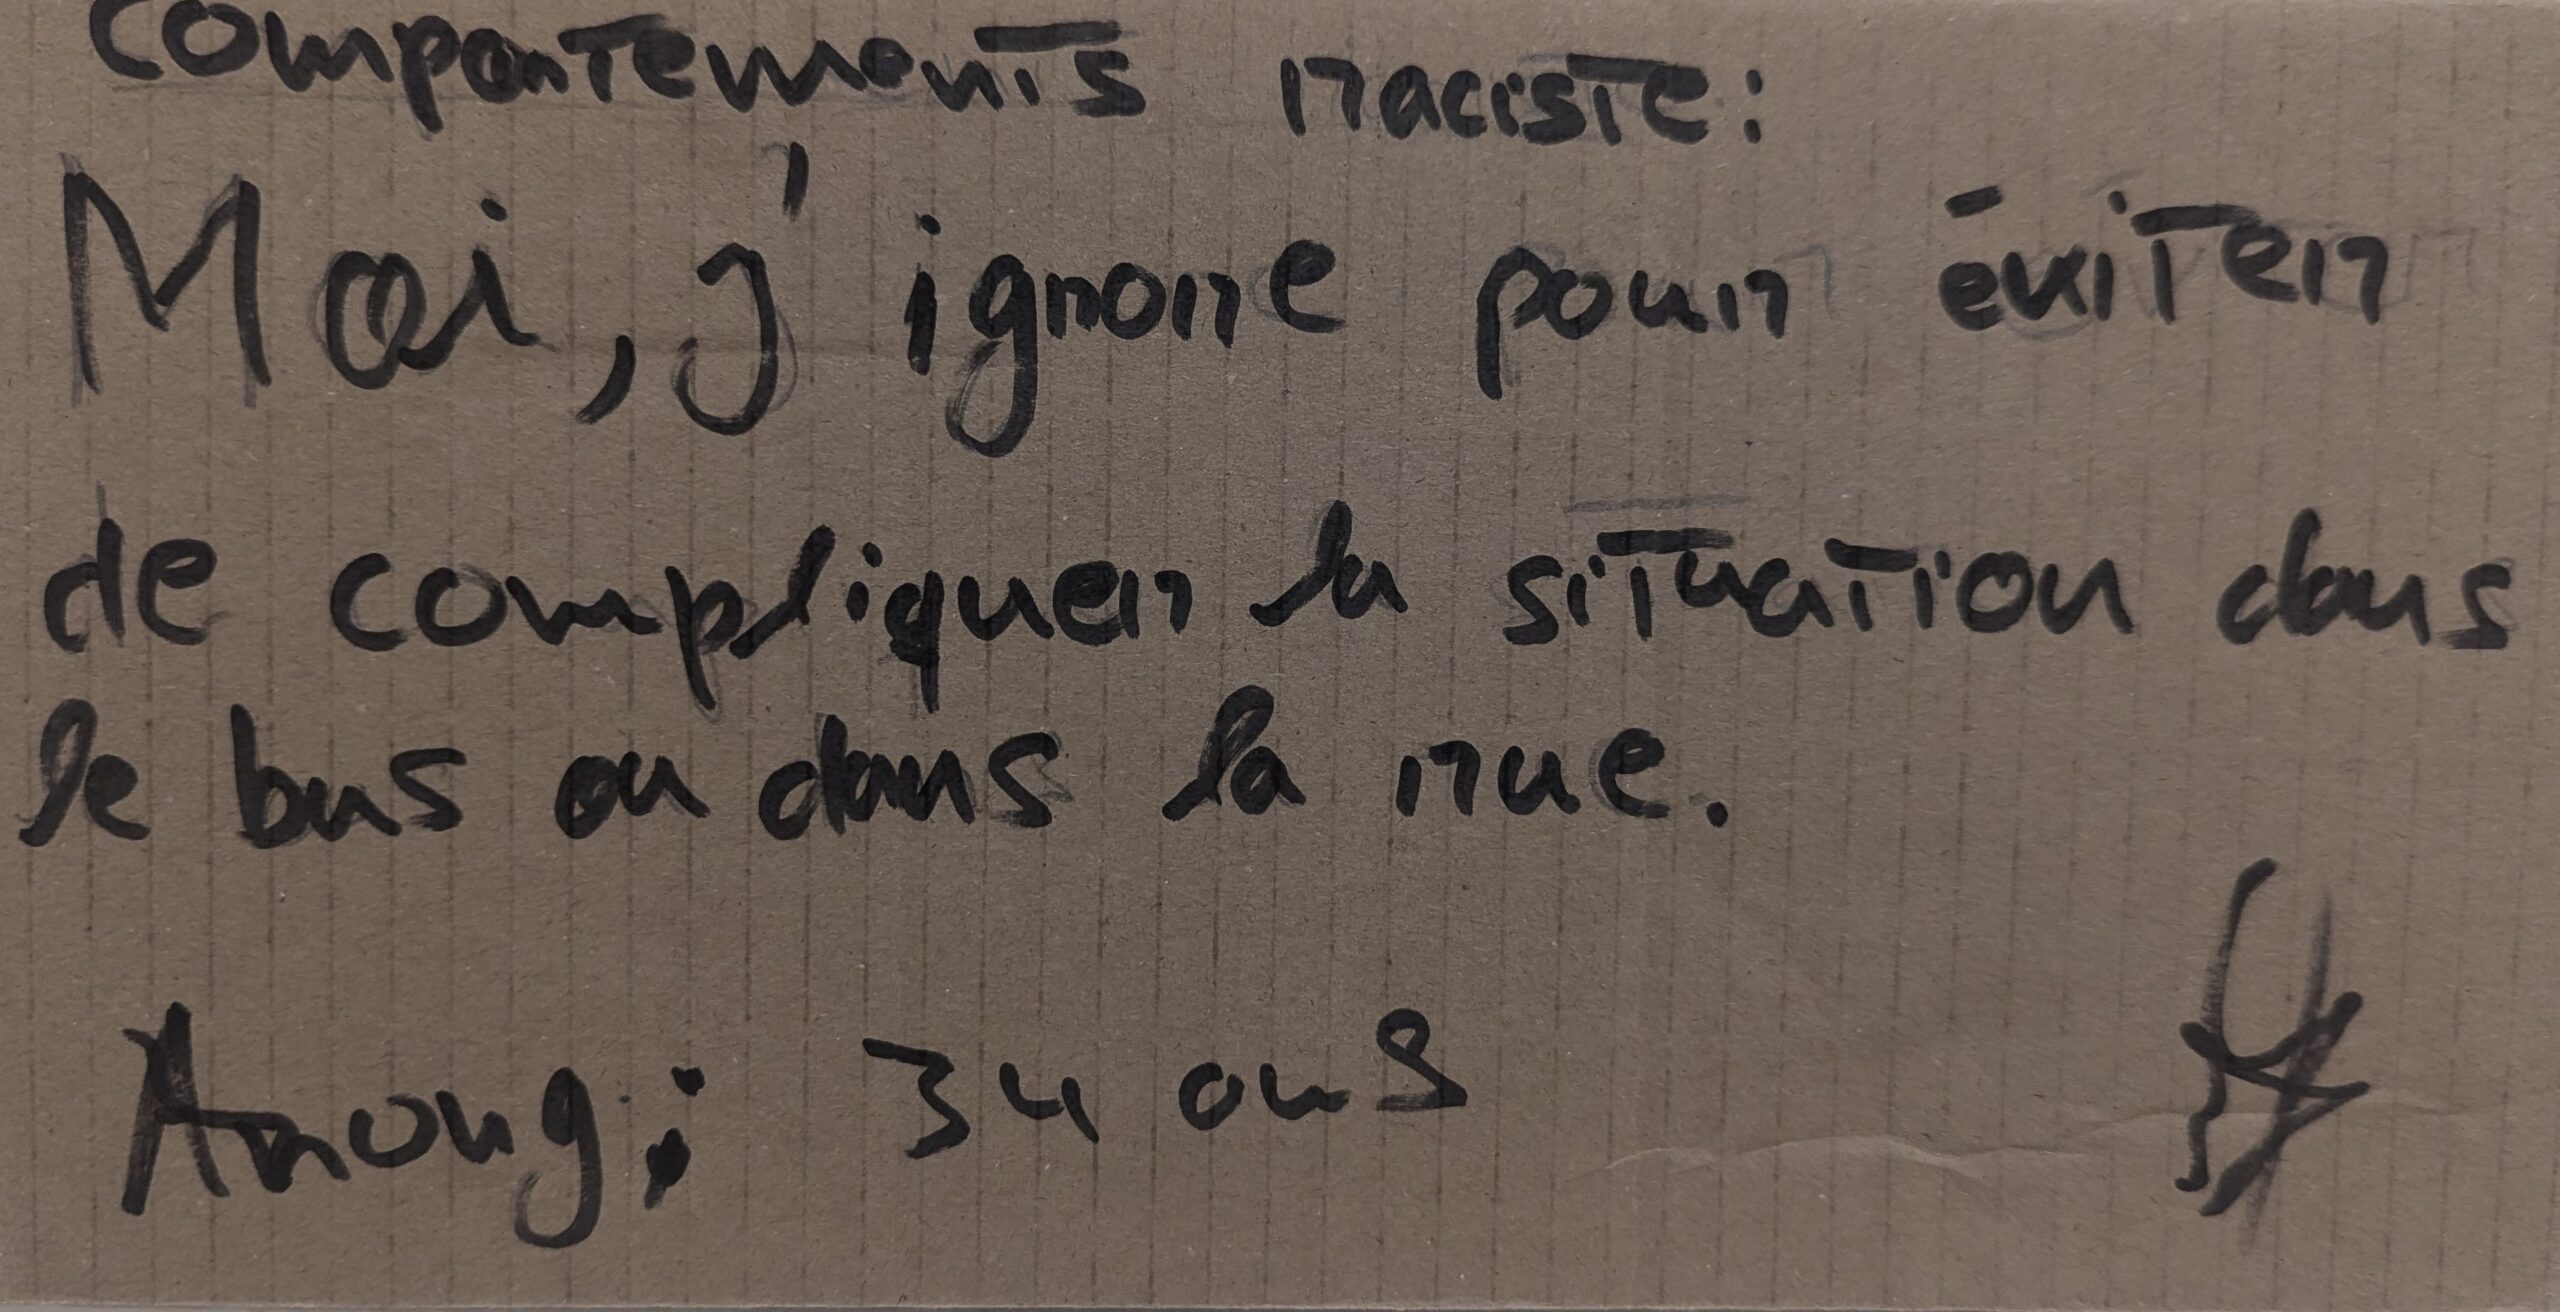 comportements raciste:
Moi, j'ignore pour éviter
de compliquer la situation dans
le bus ou dans la rue.
Anong; 34 ans